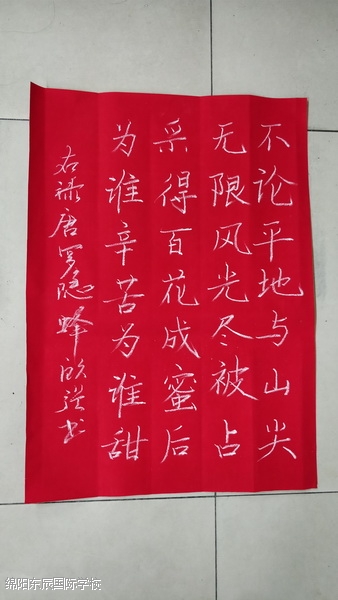 不论平地与山尖
无限风光尽被占
采得百花成蜜后
为谁辛苦为谁甜
右录唐罗隐蜂 书
绵阳东辰国际学校